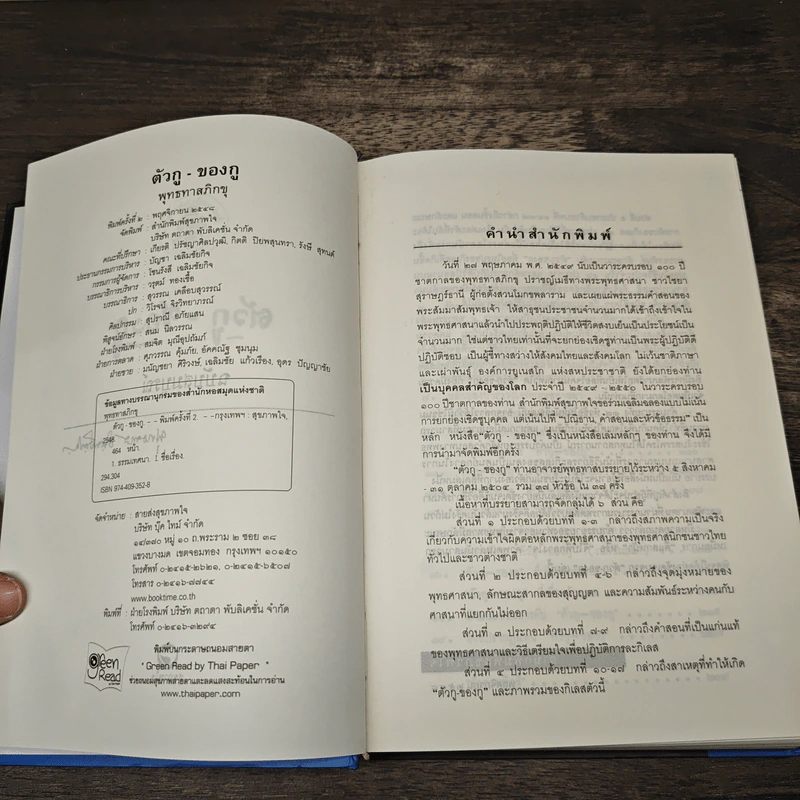 ตัวกู - ของกู
พุทธทาสภิกขุ
พิมพ์ครั้งที่ ๒ : พฤศจิกายน ๒๕๔๘
จัดพิมพ์ : สำนักพิมพ์สุขภาพใจ
บริษัท ตถาตา พับลิเคชั่น จำกัด
คณะที่ปรึกษา : เกียรติ ปรัชญาศิลปวุฒิ, กิตติ ปิยพสุนทรา, รังษี สุทนต์
ประธานกรรมการบริหาร : บัญชา เฉลิมชัยกิจ
กรรมการผู้จัดการ : โชนรังสี เฉลิมชัยกิจ
บรรณาธิการบริหาร : วรุตม์ ทองเชื้อ
บรรณาธิการ : สุวรรณ เคลือบสุวรรณ์
ปก : วิโรจน์ จิรวิทยาภรณ์
ศิลปกรรม : สุปราณี อภัยแสน
พิสูจน์อักษร : สนม นิลวรรณ
ฝ่ายโรงพิมพ์ : สมจิต มุณีอุปถัมภ์
ฝ่ายการตลาด : ศุภวรรณ คุ้มภัย, อัคคณัฐ ชุมนุม
ฝ่ายขาย : มนัญชยา ศิริวงษ์, เฉลิมชัย แก้วเรือง, อุดร ปัญญาชัย
ข้อมูลทางบรรณานุกรมของสำนักหอสมุดแห่งชาติ
พุทธทาสภิกขุ
ตัวกู - ของกู. --พิมพ์ครั้งที่ 2. --กรุงเทพฯ : สุขภาพใจ,
2548
464 หน้า
1. ธรรมเทศนา. I. ชื่อเรื่อง.
294.304
ISBN 974-409-352-8
จัดจำหน่าย : สายส่งสุขภาพใจ
บริษัท บุ๊ค ไทม์ จำกัด
๑๔/๓๗๐ หมู่ ๑๐ ถ.พระราม ๒ ซอย ๓๘
แขวงบางมด เขตจอมทอง กรุงเทพฯ ๑๐๑๕๐
โทรศัพท์ ๐-๒๔๑๕-๒๖๒๑, ๐-๒๔๑๕-๖๕๐๗
โทรสาร ๐-๒๔๑๖-๗๗๔๔
www.booktime.co.th
พิมพ์ที่ : ฝ่ายโรงพิมพ์ บริษัท ตถาตา พับลิเคชั่น จำกัด
โทรศัพท์ ๐-๒๔๑๖-๓๒๙๔
Green Read
พิมพ์บนกระดาษถนอมสายตา
" Green Read by Thai Paper "
ช่วยถนอมสุขภาพสายตาและลดแสงสะท้อนในการอ่าน
www.thaipaper.com
คำนำสำนักพิมพ์
วันที่ ๒๗ พฤษภาคม พ.ศ. ๒๕๔๙ นับเป็นวาระครบรอบ ๑๐๐ ปี
ชาตกาลของพุทธทาสภิกขุ ปราชญ์เมธีทางพระพุทธศาสนา ชาวไชยา
สุราษฎร์ธานี ผู้ก่อตั้งสวนโมกขพลาราม และเผยแผ่พระธรรมคำสอนของ
พระสัมมาสัมพุทธเจ้า ให้สาธุชนประชาชนจำนวนมากได้เข้าถึงเข้าใจใน
พระพุทธศาสนาแล้วนำไปประพฤติปฏิบัติให้ชีวิตสงบเย็นเป็นประโยชน์เป็น
จำนวนมาก ใช่แต่ชาวไทยเท่านั้นที่จะยกย่องเชิดชูท่านเป็นพระผู้ปฏิบัติดี
ปฏิบัติชอบ เป็นผู้ชี้ทางสว่างให้สังคมไทยและสังคมโลก ไม่เว้นชาติภาษา
และเผ่าพันธุ์ องค์การยูเนสโก แห่งสหประชาชาติ ยังได้ยกย่องท่าน
เป็นบุคคลสำคัญของโลก ประจำปี ๒๕๔๙ - ๒๕๕๐ ในวาระครบรอบ
๑๐๐ ปีชาตกาลของท่าน สำนักพิมพ์สุขภาพใจขอร่วมเฉลิมฉลองแบบไม่เน้น
การยกย่องเชิดชูตัวบุคคล แต่เน้นไปที่ "ปณิธาน, คำสอนและหัวข้อธรรม" เป็น
หลัก หนังสือ "ตัวกู - ของกู" ซึ่งเป็นหนังสือเล่มหลักๆ ของท่าน จึงได้มี
การนำมาจัดพิมพ์อีกครั้ง
"ตัวกู - ของกู" ท่านอาจารย์พุทธทาสบรรยายไว้ระหว่าง ๕ สิงหาคม
- ๓๑ ตุลาคม ๒๕๐๔ รวม ๓๗ หัวข้อ ใน ๓๗ ครั้ง
เนื้อหาที่บรรยายสามารถจัดกลุ่มได้ ๖ ส่วน คือ
ส่วนที่ ๑ ประกอบด้วยบทที่ ๑-๓ กล่าวถึงสภาพความเป็นจริง
เกี่ยวกับความเข้าใจผิดต่อหลักพระพุทธศาสนาของพุทธศาสนิกชนชาวไทย
ทั่วไปและชาวต่างชาติ
ส่วนที่ ๒ ประกอบด้วยบทที่ ๔-๖ กล่าวถึงจุดมุ่งหมายของ
พุทธศาสนา, ลักษณะสากลของสุญญตา และความสัมพันธ์ระหว่างคนกับ
ศาสนาที่แยกกันไม่ออก
ส่วนที่ ๓ ประกอบด้วยบทที่ ๗-๙ กล่าวถึงคำสอนที่เป็นแก่นแท้
ของพุทธศาสนาและวิธีเตรียมใจเพื่อปฏิบัติการละกิเลส
ส่วนที่ ๔ ประกอบด้วยบทที่ ๑๐-๑๗ กล่าวถึงสาเหตุที่ทำให้เกิด
"ตัวกู-ของกู" และภาพรวมของกิเลสตัวนี้